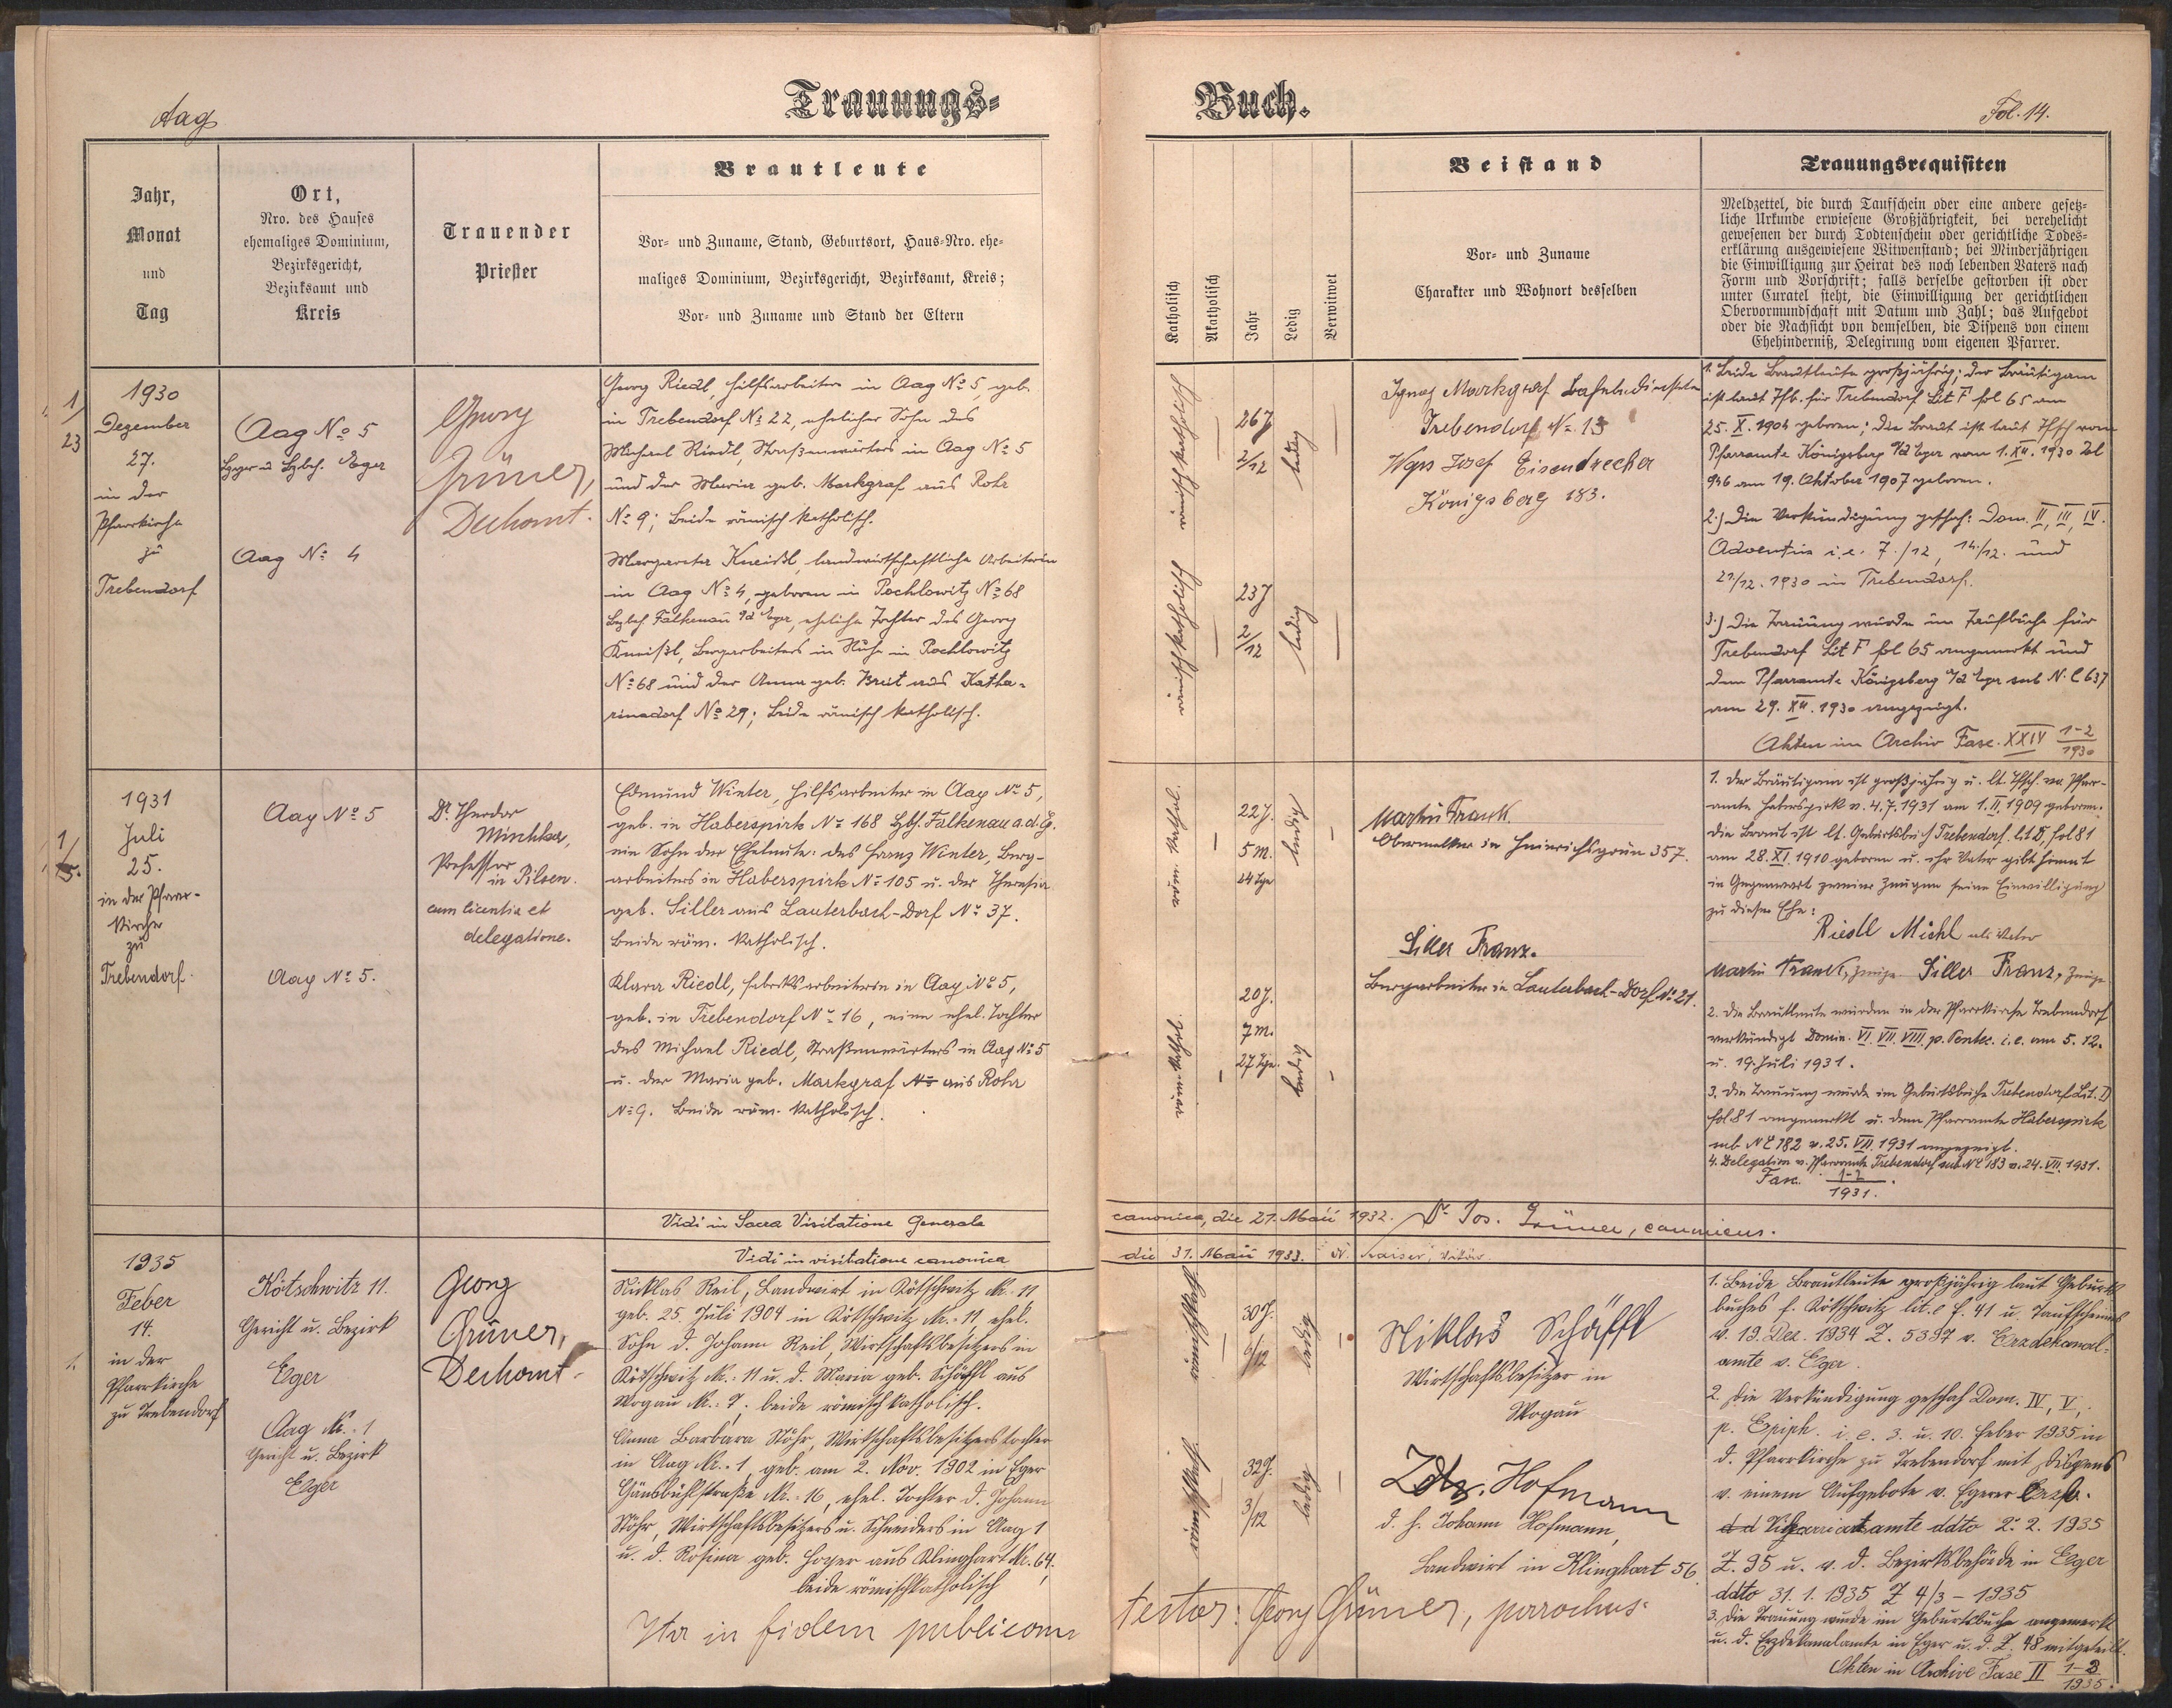 Aag
Trauungs=
Buch.
Fol. 14.
Jahr,
Monat
und
Tag
Ort,
Nro. des Hauses
ehemaliges Dominium,
Bezirksgericht,
Bezirksamt und
Kreis
Trauender
Priester
Brautleute
Vor- und Zuname, Stand, Geburtsort, Haus-Nro. ehe-
maliges Dominium, Bezirksgericht, Bezirksamt, Kreis;
Vor- und Zuname und Stand der Eltern
Katholisch
Akatholisch
Jahr
Ledig
Verwitwet
Beistand
Vor- und Zuname
Charakter und Wohnort desselben
Trauungsrequisiten
Meldzettel, die durch Taufschein oder eine andere gesetz-
liche Urkunde erwiesene Großjährigkeit, bei verehelicht
gewesenen der durch Todtenschein oder gerichtliche Todes-
erklärung ausgewiesene Witwenstand; bei Minderjährigen
die Einwilligung zur Heirat des noch lebenden Vaters nach
Form und Vorschrift; falls derselbe gestorben ist oder
unter Curatel steht, die Einwilligung der gerichtlichen
Obervormundschaft mit Datum und Zahl; das Aufgebot
oder die Nachsicht von demselben, die Dispens von einem
Ehehinderniß, Delegirung vom eigenen Pfarrer.
1/23
1930
Dezember
27.
in der
Pfarrkirche
zu
Trebendorf
Aag No 5
Eger
Aag No 4
Georg
Grüner,
Dechant.
Georg Riedl, Hilfsarbeiter in Aag No 5, geb.
in Trebendorf No 22, ehelicher Sohn des
Michael Riedl, Straßenwärters in Aag No 5
und der Maria geb. Markgraf aus Rohr
No 9; beide römisch katholisch.
Margareta Kneißl, landwirtschaftliche Arbeiterin
in Aag No 4, geboren in Pochlowitz No 68
Bzbch. Falkenau a/d Eger, eheliche Tochter des Georg
Kneißl, Bergarbeiters in Ruhe in Pochlowitz
No 68 und der Anna geb. Breit aus Katha-
rinadorf No 29; beide römisch katholisch.
römisch katholisch
—
26 J
2/12
ledig
—
römisch katholisch
—
23 J
2/12
ledig
—
Ignaz Markgraf
Trebendorf No 13
Josef Eisendrecher
Königsberg 183.
1. Beide Brautleute großjährig; der Bräutigam
ist laut Tfb. für Trebendorf Lit F fol 65 am
25. X. 1904 geboren; die Braut ist laut Tfsch vom
Pfarramte Königsberg a/d Eger vom 1. XII. 1930 Zl
946 am 19. Oktober 1907 geboren.
2.) Die Verkündigung geschah: Dom. II, III, IV.
Adventus i. e. 7./12, 14./12. und
21/12. 1930 in Trebendorf.
3.) Die Trauung wurde im Taufbuche für
Trebendorf Lit F fol 65 angemerkt und
dem Pfarramte Königsberg a/d Eger sub N. E 637
am 29. XII. 1930 angezeigt.
Akten im Archiv Fasc. XXIV 1-2/1930
1931
Juli
25.
in der Pfarr-
kirche
zu
Trebendorf.
Aag No 5
Aag No 5.
Dr. Theodor
Mischka,
Professor
in Pilsen.
cum licentia et
delegatione.
Edmund Winter, Hilfsarbeiter in Aag No 5,
geb. in Haberspirk No 168 Bzb. Falkenau a. d. Eg.
ein Sohn der Eheleute: des Franz Winter, Berg-
arbeiters in Haberspirk No 105 u. der Theresia
geb. Siller aus Lauterbach-Dorf No 37.
beide röm. katholisch.
Klara Riedl, Fabriksarbeiterin in Aag No 5,
geb. in Trebendorf No 16, eine ehel. Tochter
des Michael Riedl, Straßenwärters in Aag No 5
u. der Maria geb. Markgraf No aus Rohr
No 9. beide röm. katholisch.
röm. kathol.
—
22 J.
5 M.
24 Tge
ledig
—
röm. kathol.
—
20 J.
7 M.
27 Tge.
ledig
—
Martin Frank.
Obermelker in Heinrichsgrün 357.
Siller Franz.
Bergarbeiter in Lauterbach-Dorf No 21.
1. Der Bräutigam ist großjährig u. lt. Tfsch. vom Pfarr-
amte Haberspirk v. 4.7.1931 am 1. II. 1909 geboren.
Die Braut ist lt. Geburtsbuch Trebendorf Lit D, fol 81
am 28. XI. 1910 geboren u. ihr Vater gibt hiemit
in Gegenwart zweier Zeugen seine Einwilligung
zu dieser Ehe:
Riedl Michl als Vater
Martin Frank, Zeuge Siller Franz, Zeuge
2. Die Brautleute wurden in der Pfarrkirche Trebendorf
verkündigt Domin. VI. VII. VIII. p. Pentec. i. e. am 5. 12.
u. 19. Juli 1931.
3. Die Trauung wurde im Geburtsbuche Trebendorf Lit. D
fol 81 angemerkt u. dem Pfarramte Haberspirk
sub N E 182 v. 25. VII. 1931 angezeigt.
4. Delegation v. Pfarramte Trebendorf sub N E 183 v. 24. VII. 1931.
Fasc. 1-2/1931.
Vidi in Sacra Visitatione Generale canonica, die 21. Maii 1932. Dr. Jos. Grüner, canonicus.
Vidi in visitatione canonica die 31. Maii 1933.
1.
1935
Feber
14.
in der
Pfarrkirche
zu Trebendorf
Kötschwitz 11.
Gericht u. Bezirk
Eger
Aag Nr. 1
Gericht u. Bezirk
Eger
Georg
Grüner,
Dechant.
Niklas Reil, Landwirt in Kötschwitz Nr. 11
geb. 25. Juli 1904 in Kötschwitz Nr. 11 ehel.
Sohn d. Johann Reil, Wirtschaftsbesitzers in
Kötschwitz Nr. 11 u. d. Maria geb. Schäffl aus
Wogau Nr. 7. beide römischkatholisch.
Anna Barbara Stöhr, Wirtschaftsbesitzerstochter
in Aag Nr. 1, geb. am 2. Nov. 1902 in Eger
Gänsbühlstraße Nr. 16, ehel. Tochter d. Johann
Stöhr, Wirtschaftsbesitzers u. Schneiders in Aag 1
u. d. Rosina geb. Hoyer aus Klinghart Nr. 64,
beide römischkatholisch
römischkath
—
30 J.
6/12
ledig
—
römischkath
—
32 J.
3/12
ledig
—
Niklas Schäffl
Wirtschaftsbesitzer in
Wogau
Hofmann
d. h. Johann Hofmann,
Landwirt in Klinghart 56
1. Beide Brautleute großjährig laut Geburts
buches f. Kötschwitz lit. e f. 41 u. Taufscheines
v. 19. Dez. 1934 Z. 5397 v. Erzdekanal-
amte v. Eger.
2. Die Verkündigung geschah Dom. IV, V,
p. Epiph. i. e. 3. u. 10. Feber 1935 in
d. Pfarrkirche zu Trebendorf mit Dispens
v. einem Aufgebote v. Egerer
amte ddto 2. 2. 1935
Z. 95 u. v. d. Bezirksbehörde in Eger
ddto 31. 1. 1935 Z 4/3 – 1935
3. Die Trauung wurde im Geburtsbuche angemerkt
u. d. Erzdekanalamte in Eger u. d. Z. 48 mitgeteilt.
Akten in Archive Fasc II 1-3/1935.
Ita in fidem publicam testor: Georg Grüner, parochus.